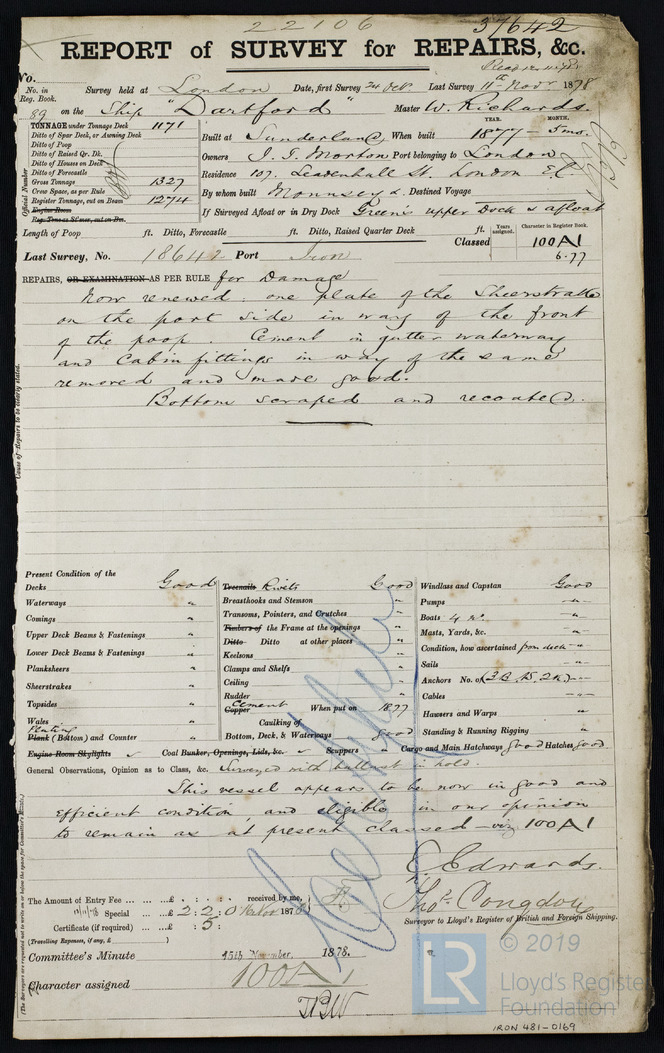 22106
37642
REPORT of SURVEY for REPAIRS, &c.
No.
No. in Reg. Book. Survey held at London Date, first Survey 24 Oct. Last Survey 11th Novr 1878
89 on the Ship "Dartford" Master W. Richards.
YEAR. MONTH.
TONNAGE under Tonnage Deck 1171
Ditto of Spar Deck, or Awning Deck
Ditto of Poop
Ditto of Raised Qr. Dk.
Ditto of Houses on Deck
Ditto of Forecastle
Gross Tonnage 1327
Crew Space, as per Rule
Register Tonnage, cut on Beam 1274
Engine Room
Official Number
Built at Sunderland, When built 1877 - 5 mo.
Owners J. G. Morton Port belonging to London
Residence 107. Leadenhall St. London E.C.
By whom built Mounsey & Destined Voyage
If Surveyed Afloat or in Dry Dock Green's upper Dock & afloat
Length of Poop ft. Ditto, Forecastle ft. Ditto, Raised Quarter Deck ft.
Years assigned. Character in Register Book.
Classed 100A1
6.77
Last Survey, No. 18642 Port Iron
REPAIRS, OR EXAMINATION AS PER RULE for Damage
Now renewed: one plate of the Sheerstrake
on the port side in way of the front
of the poop. Cement in gutter waterway
and Cabin fittings in way of the same
removed and made good.
Bottom scraped and recoated.
Cause of Repairs to be clearly stated.
Present Condition of the
Decks Good
Waterways "
Comings "
Upper Deck Beams & Fastenings "
Lower Deck Beams & Fastenings "
Planksheers "
Sheerstrakes "
Topsides "
Wales "
Plating
Plank (Bottom) and Counter "
Treenails Rivets Good
Breasthooks and Stemson "
Transoms, Pointers, and Crutches "
Timbers of the Frame at the openings "
Ditto Ditto at other places "
Keelsons "
Clamps and Shelfs "
Ceiling "
Rudder "
Cement
Copper When put on 1877
Caulking of
Bottom, Deck, & Waterways good
Windlass and Capstan Good
Pumps "
Boats 4 No. "
Masts, Yards, &c. "
Condition, how ascertained from deck "
Sails "
Anchors No. of (3B, 1S, 2K) "
Cables "
Hawsers and Warps "
Standing & Running Rigging "
Engine Room Skylights Coal Bunker, Openings, Lids, &c. Scuppers " Cargo and Main Hatchways good Hatches good
General Observations, Opinion as to Class, &c. Surveyed with ballast in hold.
This vessel appears to be now in good and
efficient condition, and eligible in our opinion
to remain as at present classed - viz 100A1
E. Edwards.
Thos. Congdon
Surveyor to Lloyd's Register of British and Foreign Shipping.
The Amount of Entry Fee £ : : received by me,
Special £ 2:2:0 1878
Certificate (if required) £ : 5 :
(Travelling Expenses, if any, £ )
Committee's Minute 15th November, 1878.
Character assigned 100A1
© 2019
LR
Lloyd's Register
Foundation
IRON 481-0169